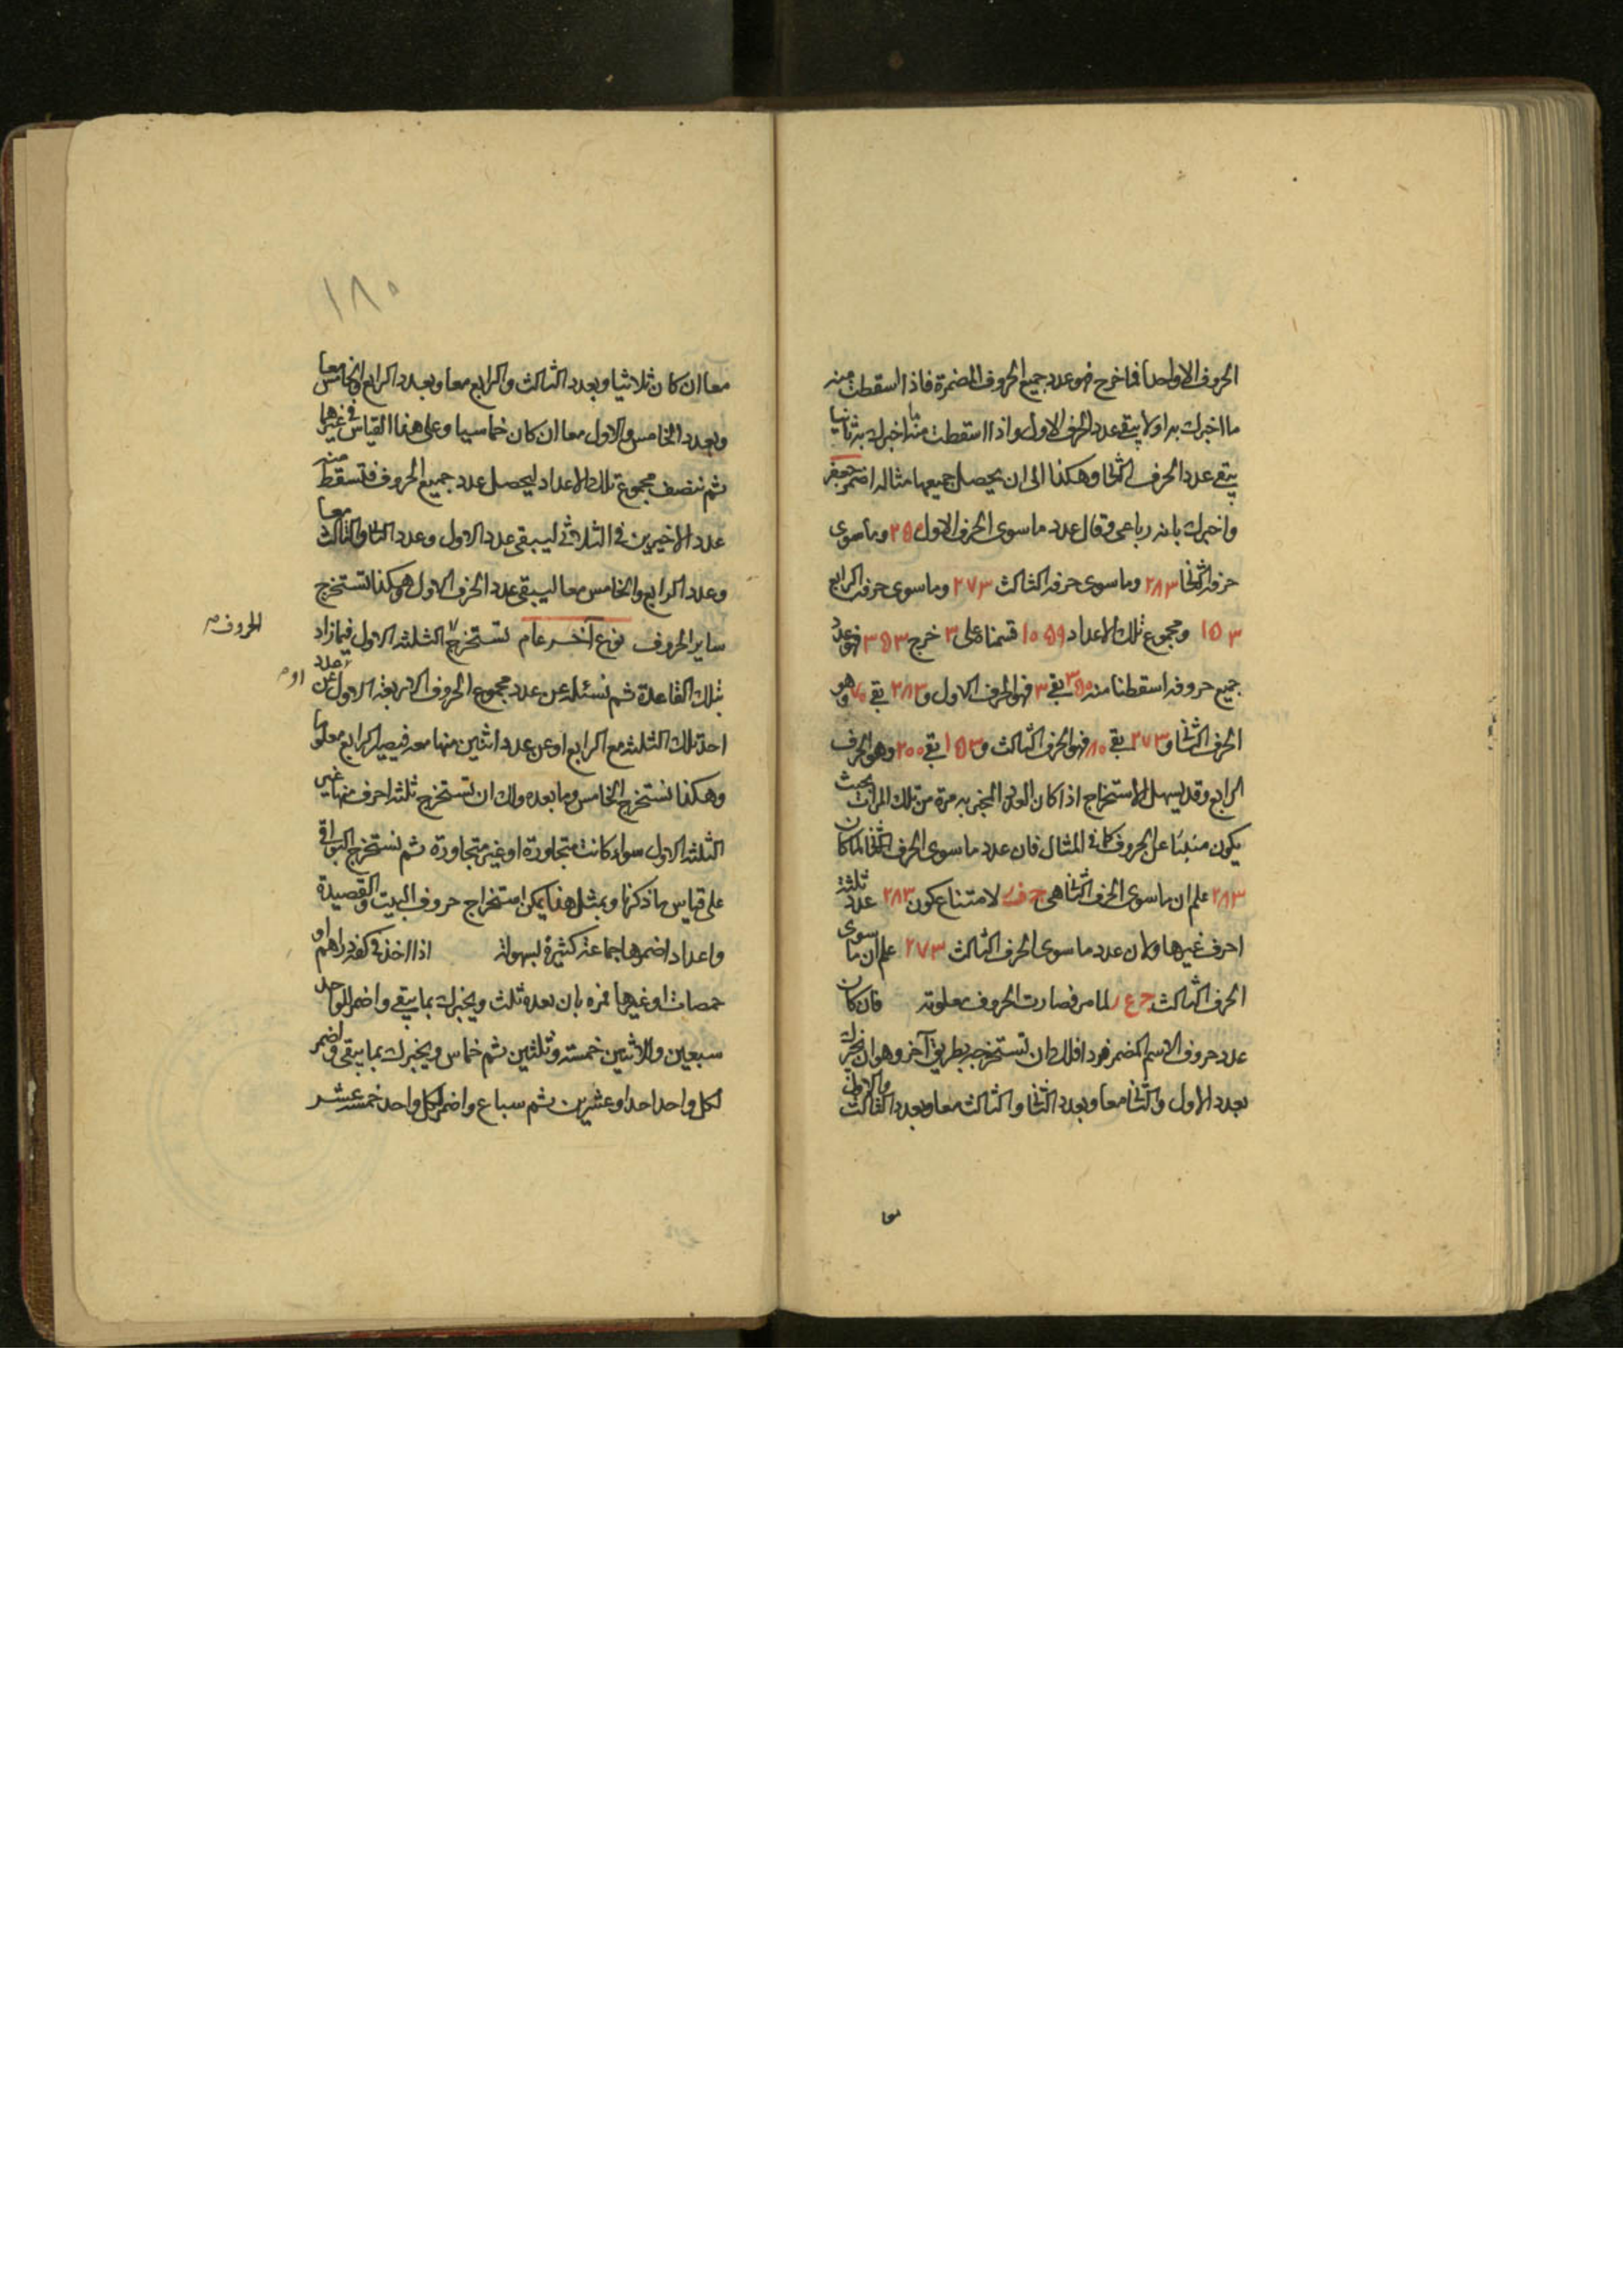 الحروف الا واحدا فما خرج فهو عدد جميع الحروف المضمرة فاذا اسقطت منه
ما اخبرك به اولا يبقى عدد الحرف الاول واذا اسقطت منه ما اخبرك به ثانيا
يبقى عدد الحرف الثانى وهكذا الى ان يحصل جميعها مثاله اضمر جعفر
واخبرك بانه رباعى وقال عدد ما سوى الحرف الاول ٣٥٠ وما سوى
حرفه الثانى ٢٨٣ وما سوى حرفه الثالث ٢٧٣ وما سوى حرفه الرابع
١٥٣ ومجموع تلك الاعداد ١٠٥٩ قسمناه على ٣ خرج ٣٥٣ فهو عدد
جميع حروفه اسقطنا منه ٣٥٠ بقى ٣ فهو الحرف الاول و ٢٨٣ بقى ٧٠ وهو
الحرف الثانى و ٢٧٣ بقى ٨٠ فهو الحرف الثالث و ١٥٣ بقى ٢٠٠ وهو الحرف
الرابع وقد يسهل الاستخراج اذا كان العدد المخبر به مرة من تلك المرات بحيث
يكون منبئا عن الحروف كما فى المثال فان عدد ما سوى الحرف الثانى لما كان
٢٨٣ علم ان ما سوى الحرف الثانى هى ج ف ر لامتناع كون ٢٨٣ عدد ثلثة
احرف غيرها ولان عدد ما سوى الحرف الثالث ٢٧٣ علم ان ما سوى
الحرف الثالث ج ع ر لما مر فصارت الحروف معلومة فان كان
عدد حروف الاسم المضمر فردا فلك ان تستخرجه بطريق آخر وهو ان يخبرك
بعدد الاول والثانى معا وبعدد الثانى والثالث معا وبعدد الثالث والاول
١٨٠
معا ان كان ثلاثيا وبعدد الثالث والرابع معا وبعدد الرابع والخامس معا
وبعدد الخامس والاول معا ان كان خماسيا وعلى هذا القياس فى غيرها
ثم ننصف مجموع تلك الاعداد ليحصل عدد جميع الحروف فتسقط منه
عدد الاخيرين فى الثلاثى ليبقى عدد الاول وعدد الثانى والثالث معا
وعدد الرابع والخامس معا ليبقى عدد الحرف الاول وهكذا تستخرج
ساير الحروف نوع آخر عام تستخرج الثلثة الاول فيما زاد
الحروف
بتلك القاعدة ثم نسئله عن عدد مجموع الحروف الاربعة الاول او عن عدد
احد تلك الثلثة مع الرابع او عن عدد اثنين منها معه فيصير الرابع معلوما
وهكذا نستخرج الخامس وما بعده ولك ان تستخرج ثلثة احرف منها غير
الثلثة الاول سواء كانت متجاورة او غير متجاورة ثم نستخرج البواقى
على قياس ما ذكرنا وبمثل هذا يمكن استخراج حروف البيت والقصيدة
واعداد اضمرها جماعة كثيرة بسهولة اذا اخذ فى كفه دراهم او
حمصات او غيرها فمره بان يعده ثلث ويخبرك بما يبقى واضمر للواحد
سبعين وللاثنين خمسة وثلثين ثم خماس ويخبرك بما يبقى واضمر
لكل واحد احدا وعشرين ثم سباع واضمر لكل واحد خمسة عشر